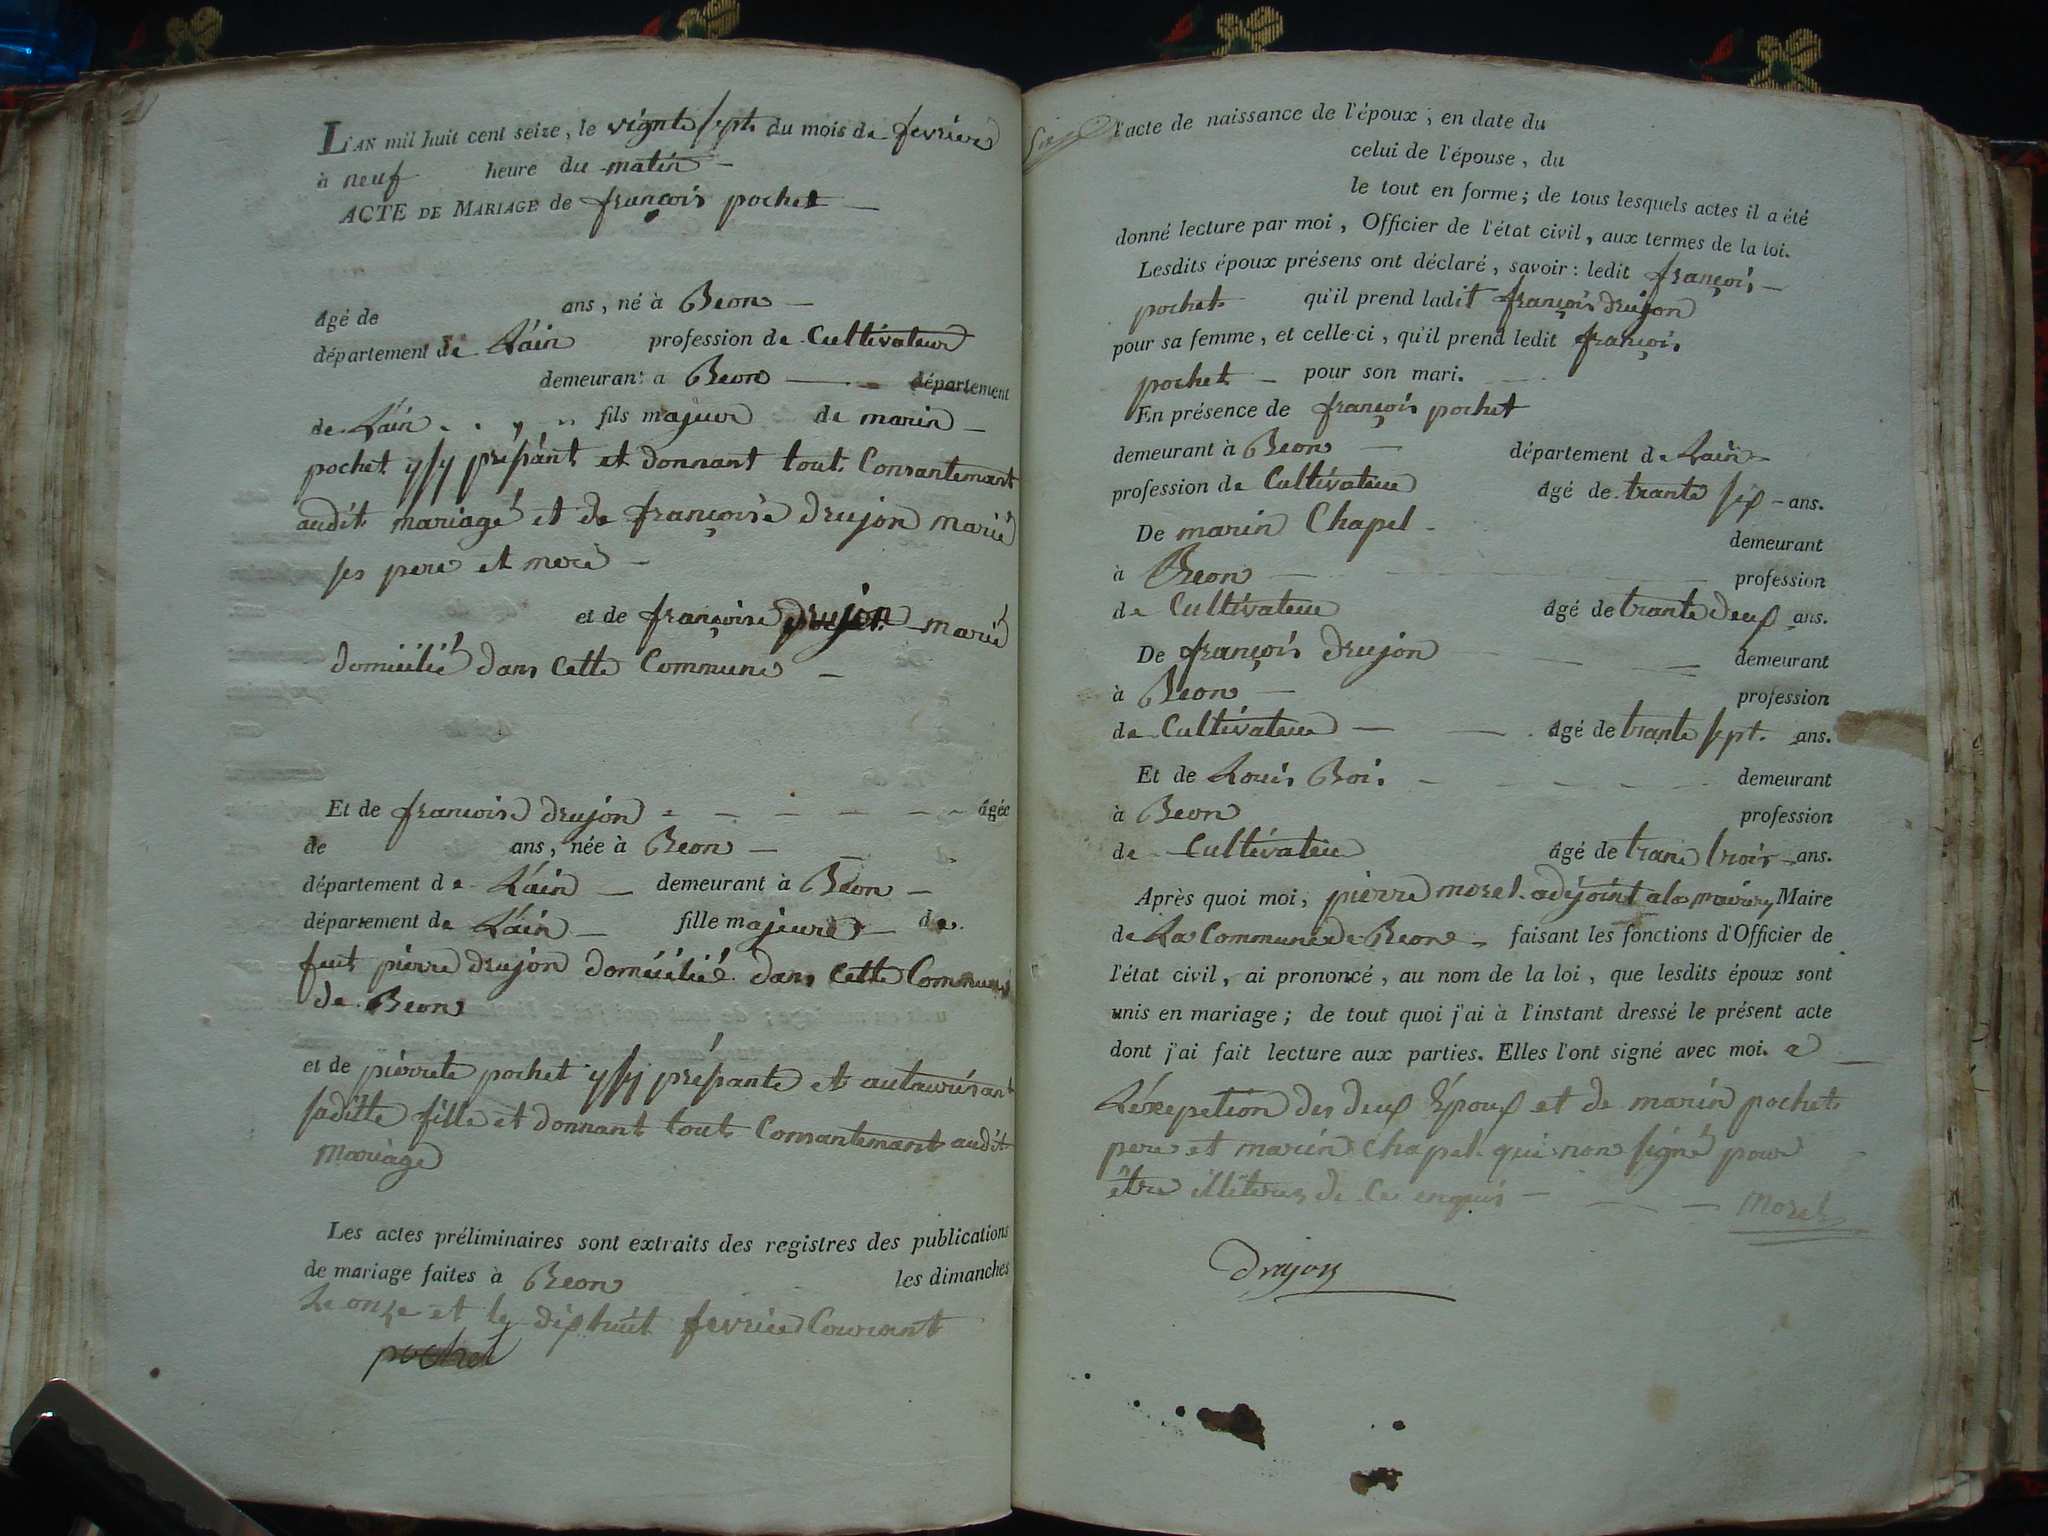 L'AN mil huit cent seize, le vignte sept du mois de fevrier
à neuf heure du matin
ACTE DE MARIAGE de françois pochet
âgé de ans, né à Beon
département de Lain profession de Cultivateur
demeurant a Beon département
de Lain fils majeur de marin
pochet ysy présant et donnant tout Consantemant
audit mariage et de françoise drujon marié
ses pere et mere
et de françoise drujon marié
domicilié dans cette Commune
Et de francoise drujon âgée
de ans, née à Beon
département de Lain demeurant à Beon
département de Lain fille majeure de
feut pierre drujon domicilié dans cette Commune
de Beon
et de pierrete pochet ysy présante et autaurisant
saditte fille et donnant tout Consantemant audit
mariage
Les actes préliminaires sont extraits des registres des publications
de mariage faites à Beon les dimanches
Le onze et le dixhuit fevrier Courant
pochet
l'acte de naissance de l'époux; en date du
celui de l'épouse, du
le tout en forme; de tous lesquels actes il a été
donné lecture par moi, Officier de l'état civil, aux termes de la loi.
Lesdits époux présens ont déclaré, savoir: ledit françois
pochet qu'il prend ladit françoise drujon
pour sa femme, et celle-ci, qu'il prend ledit françois
pochet pour son mari.
En présence de françois pochet
demeurant à Beon département de Lain
profession de Cultivateur âgé de trante six ans.
De marin Chapel demeurant
à Beon profession
de Cultivateur âgé de trante deux ans.
De françois drujon demeurant
à Beon profession
de Cultivateur âgé de trante sept ans.
Et de Louis Boi. demeurant
à Beon profession
de Cultivateur âgé de trant trois ans.
Après quoi moi, pierre morel adjoint a la mairie Maire
de La Commune de Beon faisant les fonctions d'Officier de
l'état civil, ai prononcé, au nom de la loi, que lesdits époux sont
unis en mariage; de tout quoi j'ai à l'instant dressé le présent acte
dont j'ai fait lecture aux parties. Elles l'ont signé avec moi. a
Léxepetion des deux Époux et de marin pochet
pere et marin Chapel qui non signé pour
être illiteres de Ce enquis Morel
Drujon